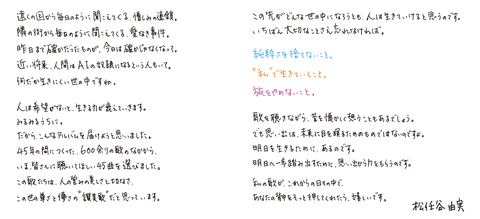 遠くの国から毎日のように聞こえてくる、憎しみの連鎖。
隣の街から毎日のように聞こえてくる、愛なき事件。
昨日まで確かだったものが、今日は確かじゃなくなって。
近い将来、人間はAIの奴隷になるという人もいて。
何だか生きにくい世の中ですね。
人は希望がないと、生きる力が衰えていきます。
みるみるうちに。
だから、こんなアルバムを届けようと思いました。
45年の間につくった、600余りの歌のなかから、
いま、皆さんに聴いてほしい45曲を選びました。
この歌たちは、人の営みの美しさと切なさ、
この世の尊さと儚さの"讃美歌"だと思っています。
この先がどんな世の中になろうとも、人は生きていけると思うのです。
いちばん大切なことさえ忘れなければ。
純粋さを捨てないこと。
"私"で生きていくこと。
旅をやめないこと。
歌を聴きながら、昔を懐かしく想うこともあるでしょう。
でも思い出は、未来に目を瞑るためのものではないのですよ。
明日を生きるために、あるのです。
明日へ一歩踏み出すために、思い出から力をもらうのです。
私の歌が、これからの日々の中で、
あなたの背中をそっと押してくれたら、嬉しいです。
松任谷由実